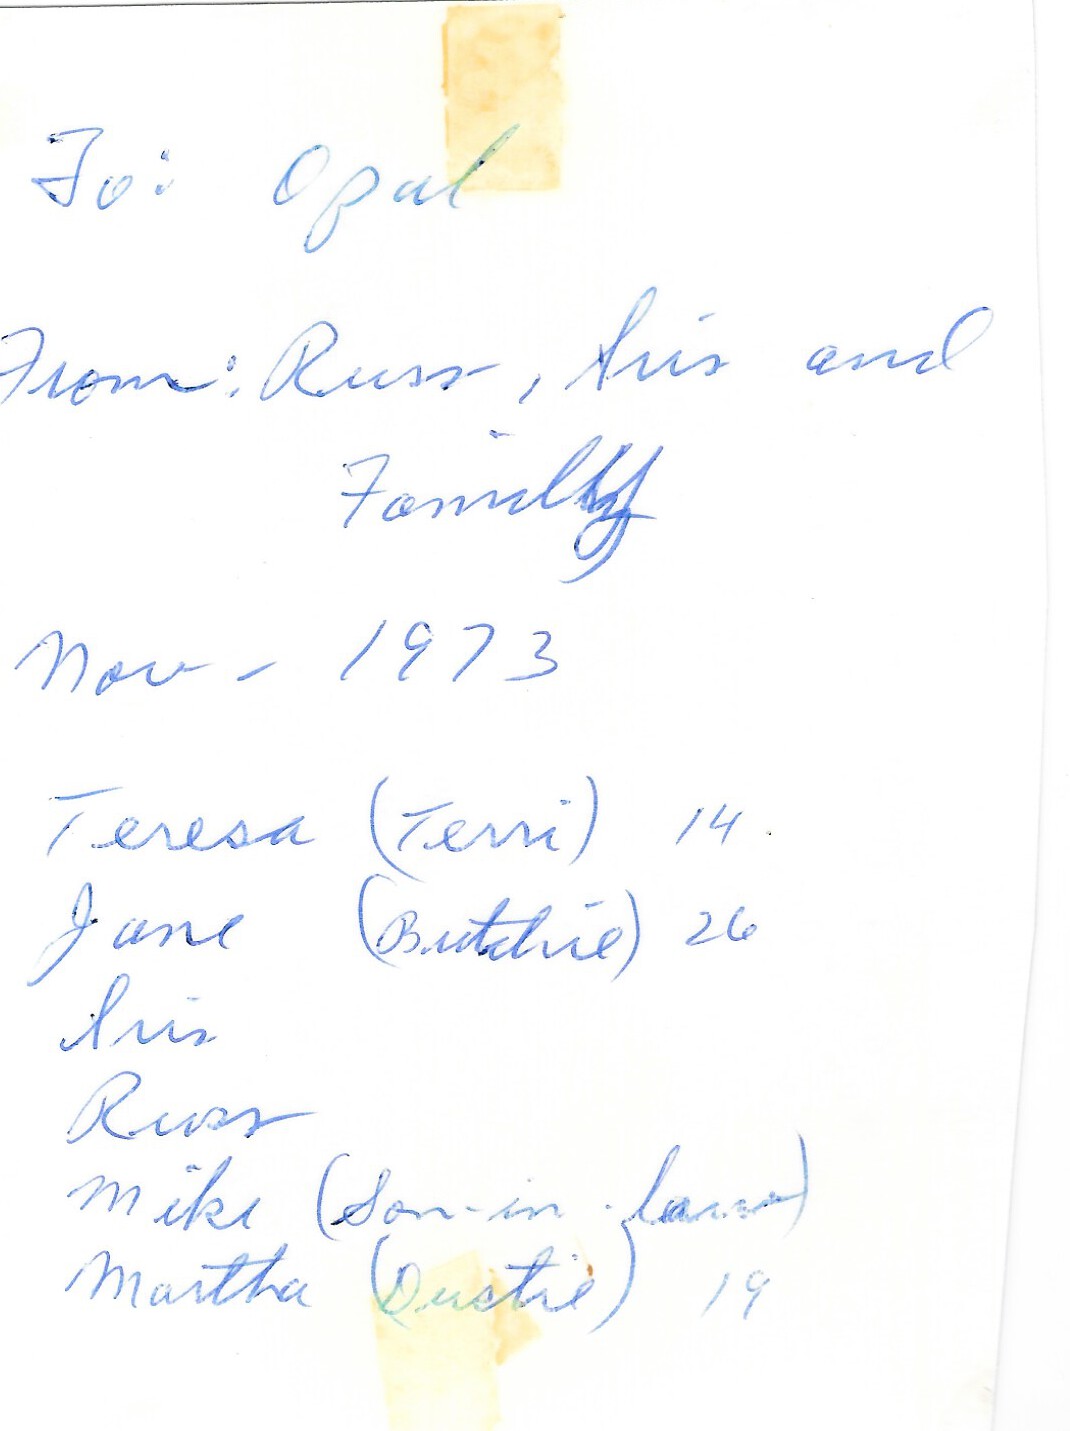 To: Opal
From: Russ, Iris and
Family
Nov - 1973
Teresa (Terri) 14
Jane (Butchie) 26
Iris
Russ
Mike (Son-in-law)
Martha (Dustie) 19